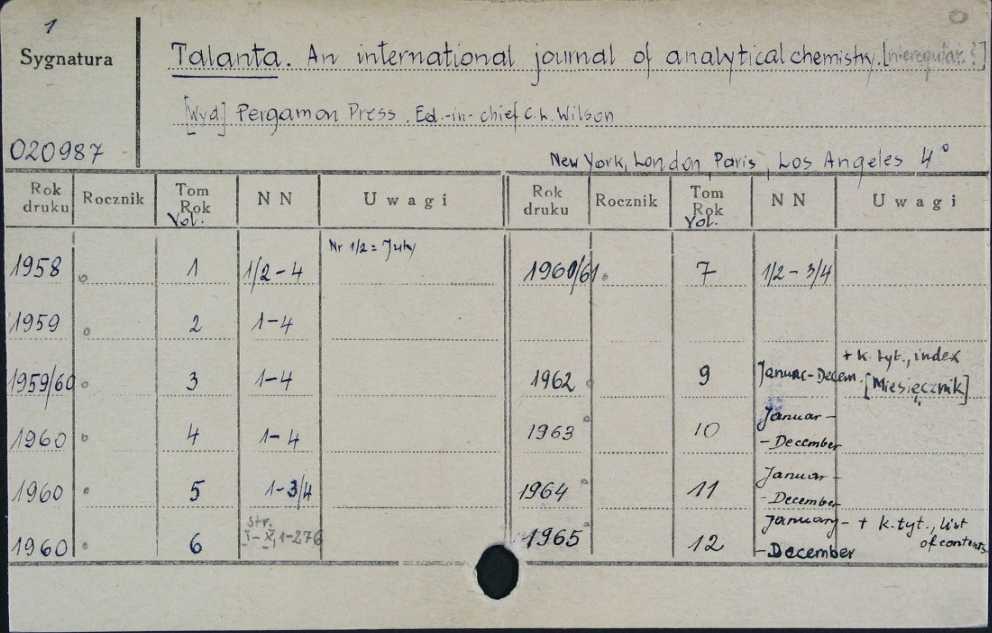 1
Sygnatura
Talanta. An international journal of analytical chemistry. [nieregular.?]
[Wyd.] Pergamon Press. Ed.-in-chief C. L. Wilson
020987
New York, London, Paris, Los Angeles 4°
Rok druku Rocznik Tom Rok Vol. NN Uwagi Rok druku Rocznik Tom Rok Vol. NN Uwagi
1958 1 1/2-4 Nr 1/2 = July 1960/61 7 1/2-3/4
1959 2 1-4
1959/60 3 1-4 1962 9 Januar-Decem. + k. tyt., index [Miesięcznik]
1960 4 1-4 1963 10 Januar--December
1960 5 1-3/4 1964 11 Januar--December
1960 6 str. I-X, 1-276 1965 12 January--December + k. tyt., list of contents